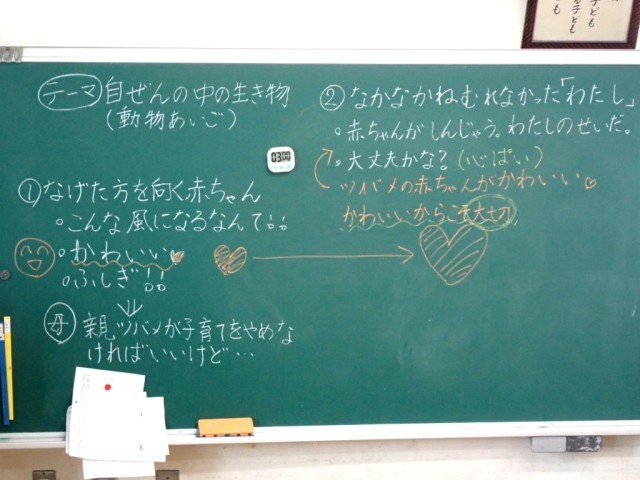 テーマ 自ぜんの中の生き物
(動物あいご)
①なげた方を向く赤ちゃん
・こんな風になるなんて!!
・かわいい
・ふしぎ!!
↓
母 親ツバメが子育てをやめな
ければいいけど…
②なかなかねむれなかった「わたし」
・赤ちゃんがしんじゃう。わたしのせいだ。
・大丈夫かな?(心ぱい)
ツバメの赤ちゃんがかわいい♡
かわいいからこそ大切
03:00
子ども
る子ども
も